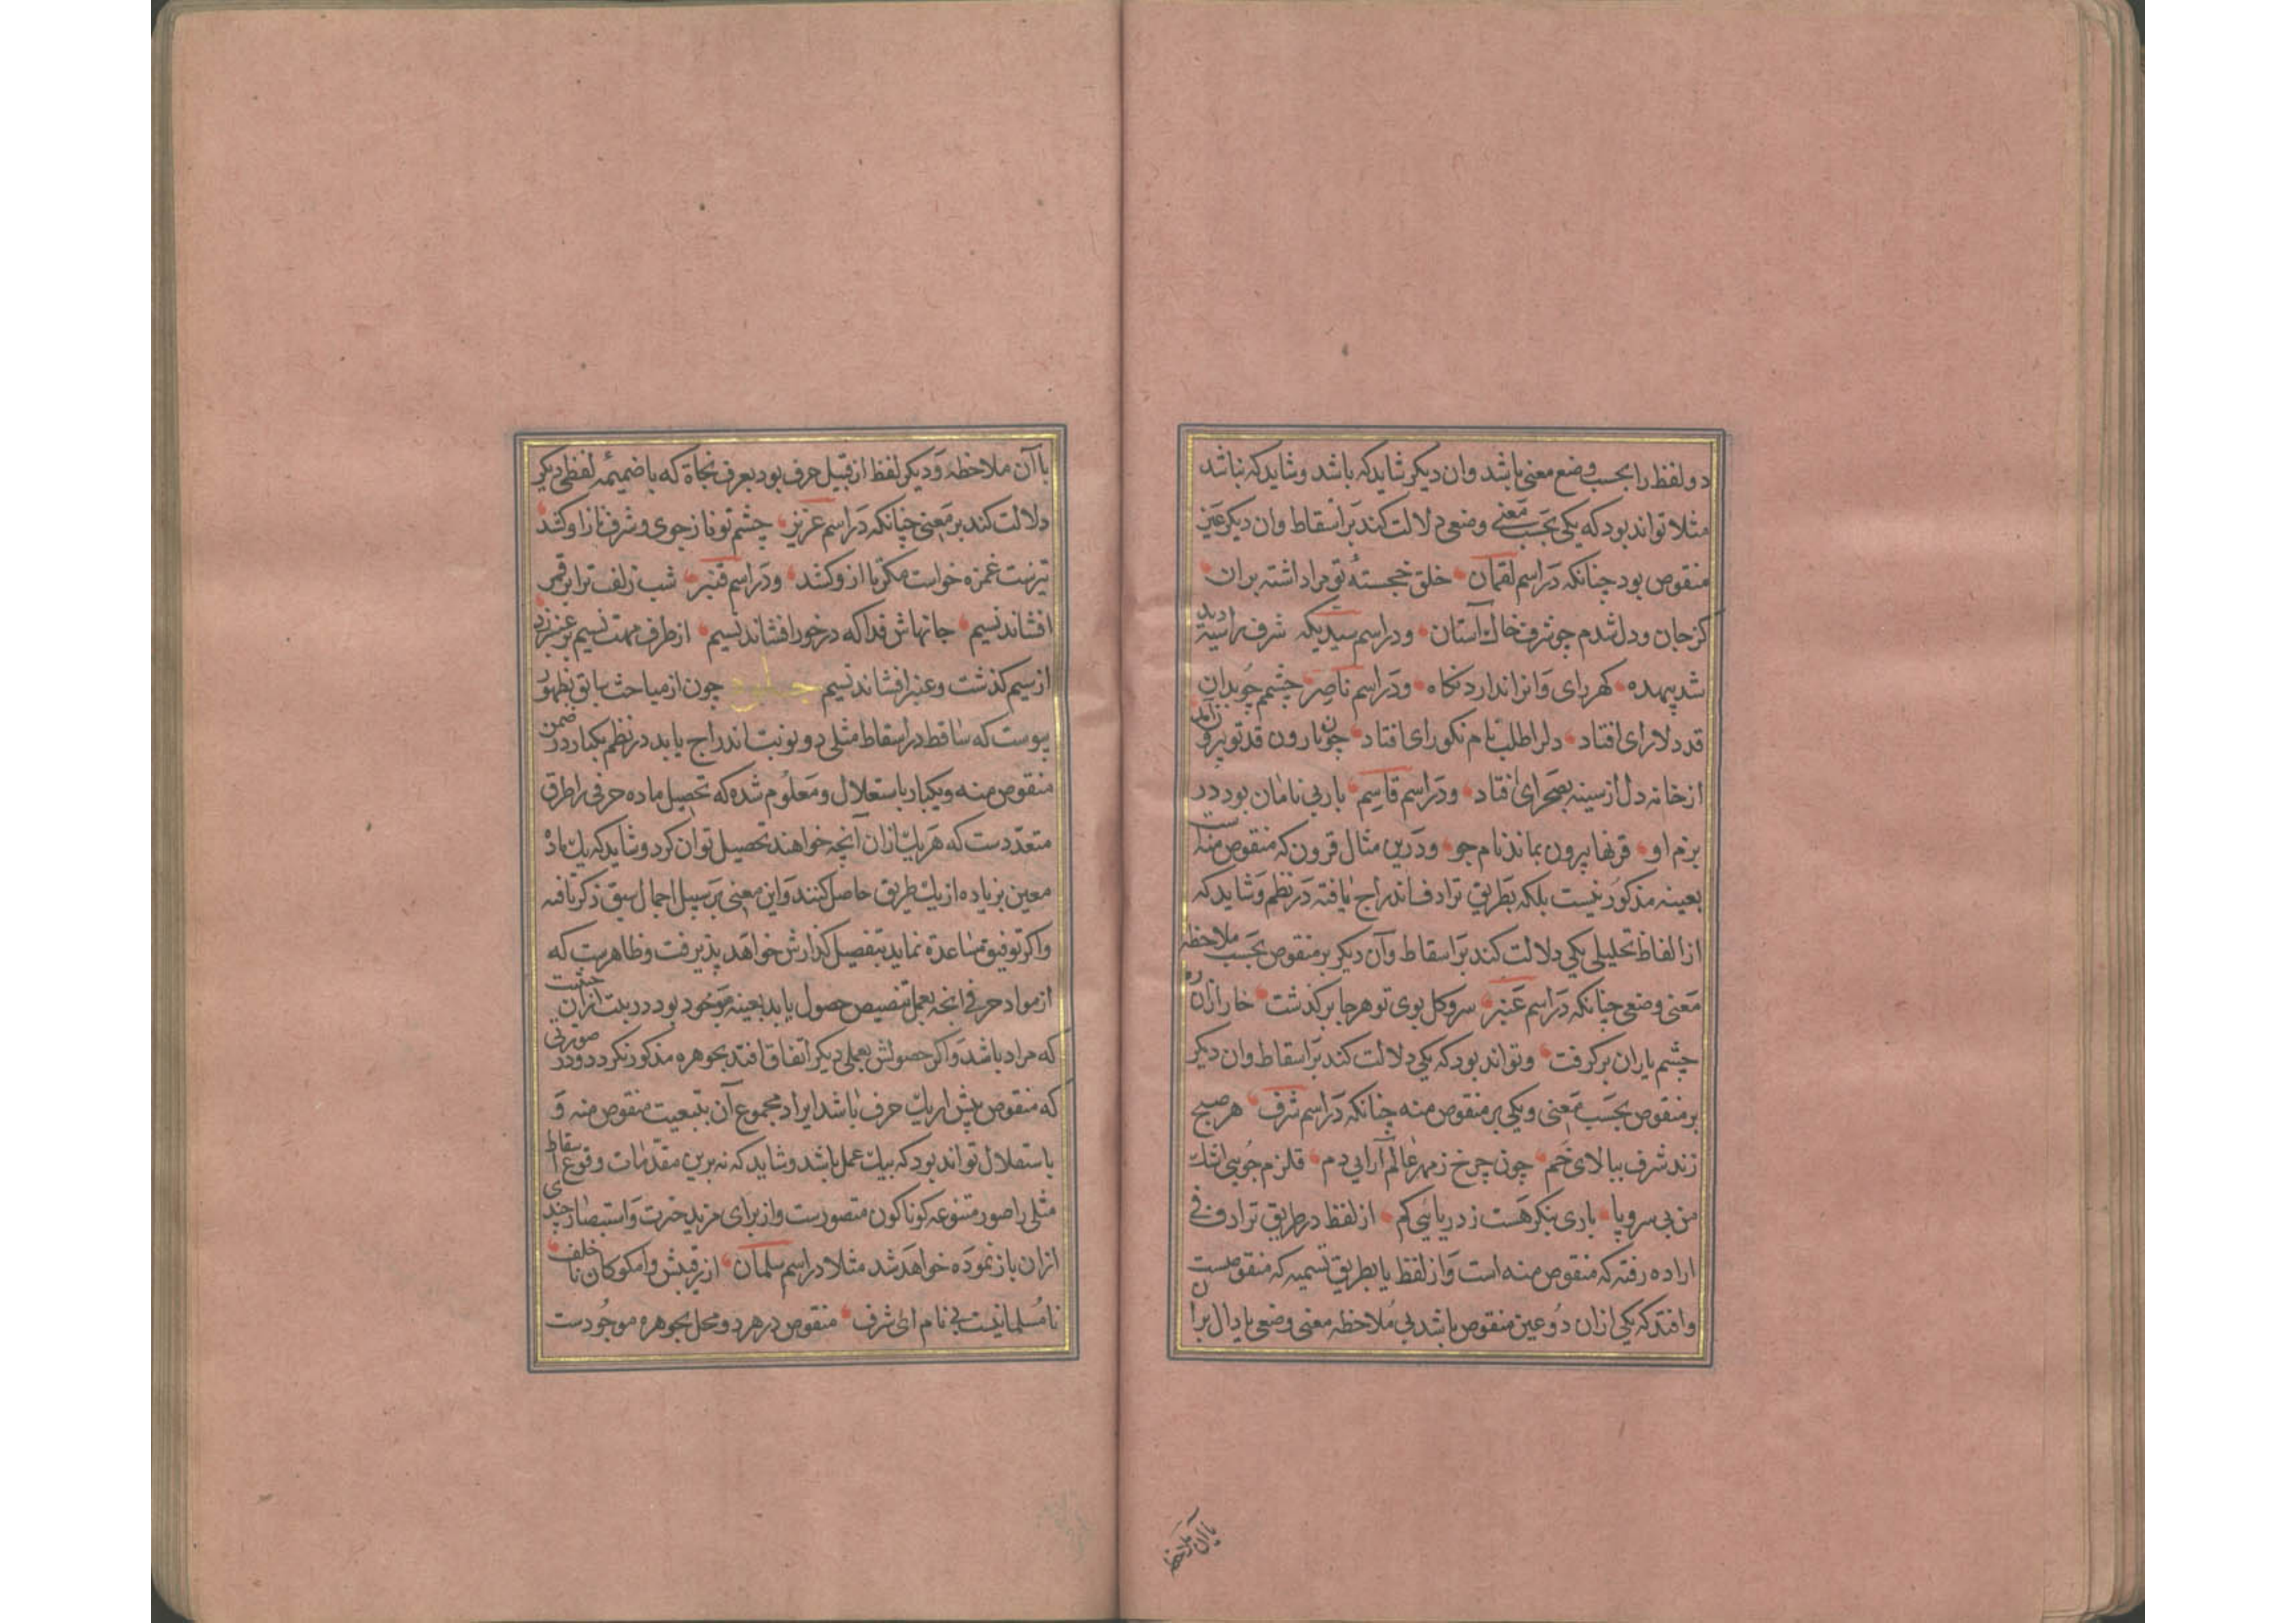 دو لفظ را بحسب وضع معنی باشد وان دیکر شاید که باشد و شاید که نباشد
مثلا تواند بود که یکی بحسب معنی وضعی دلالت کند بر اسقاط وان دیکر عین
منقوص بود چنانکه در اسم لقمان خلق خجستهٔ تو مرا داشته بران
کز جان و دل شدم چو شرف خاک آستان ودر اسم سیدیکه شرف براسیه دید
شد بیهده کهر رای وانرا ندارد نکاه ودر اسم ناصر چشم چو بدان
قد دلارای افتاد دلرا طلب نام نکورای افتاد چون بارون قد تو بیرون
از خانه دل از سینه بصحرای افتاد ودر اسم قاسم یاربی نامان بود در
بزم او قرنها بیرون بماند نام جو ودرین مثال قرون که منقوص منه است
بعینه مذکور نیست بلکه بطریق ترادف اندراج یافته در نظم وشاید که
از الفاظ تحلیلی یکی دلالت کند بر اسقاط وآن دیکر بر منقوص بحسب ملاحظه
معنی وضعی چنانکه در اسم عنبر سرو کل بوی تو هر جا بر کذشت خار ازان ره
چشم یاران بر کرفت وتواند بود که یکی دلالت کند بر اسقاط وان دیکر
بر منقوص بحسب معنی ویکی بر منقوص منه چنانکه در اسم شرف هر صبح
زند شرف ببالای خم چون چرخ ز مهر عالم آرایی دم قلزم جویی اشک
من بی سر و پا باری بنکر هست ز دریا ئی کم از لفظ در طریق ترادف فی
اراده رفته که منقوص منه است واز لفظ یا بطریق تسمیه که منقوصست
وافتد که یکی ازان دو عین منقوص باشد بی ملاحظه معنی وضعی یا دال بران
باآن ملاحظه
با آن ملاحظه ودیکر لفظ از قبیل حرف بود بعرف نجاة که با ضمیمهٔ لفظی دیکر
دلالت کند بر معنی چنانکه در اسم عزیز چشم تو ناز جوی وشرف ناز او کشد
تیرت غمزه خواست مکر با ازو کشد ودر اسم قنبر شب زلف ترا بر قمر
افشاند نسیم جانهاش فدا که درخور افشاند نسیم از طرف مهت نسیم بر عنبر زد
از سیم کذشت وعنبر افشاند نسیم چون از مباحث سابق بظهور
پیوست که ساقط در اسقاط مثلی دو نوبت اندراج یابد در نظم یکبار در ضمن
منقوص منه ویکبار باستقلال ومعلوم شده که تحصیل ماده حرفی را طرق
متعددست که هر یک ازان آنچه خواهند تحصیل توان کرد وشاید که یک ماده
معین بزیاده از یک طریق حاصل کنند واین معنی بر سبیل اجمال سبق ذکر یافته
واکر توفیق مساعده نماید بتفصیل کذارش خواهد پذیرفت وظاهرست که
از مواد حرفی انچه بعمل تنصیص حصول یابد بعینه موجود بود در بیت ازان حیثیت
که مراد باشد واکر حصولش بعملی دیکر اتفاق افتد بجوهره مذکور نکردد ودر صورتی
که منقوص بیش از یک حرف باشد ایراد مجموع آن بتبعیت منقوص منه و
باستقلال تواند بود که بیک عمل باشد وشاید که نه برین مقدمات وقوع اسقاط
مثلی را صور متنوعه کوناکون متصورست واز برای مزید خبرت واستبصار چندی
ازان باز نموده خواهد شد مثلا در اسم سلمان از رقیبش وامکو کان ناخلف
نامسلمانیست بی نام ای شرف منقوص در هر دو محل بجوهره موجودست